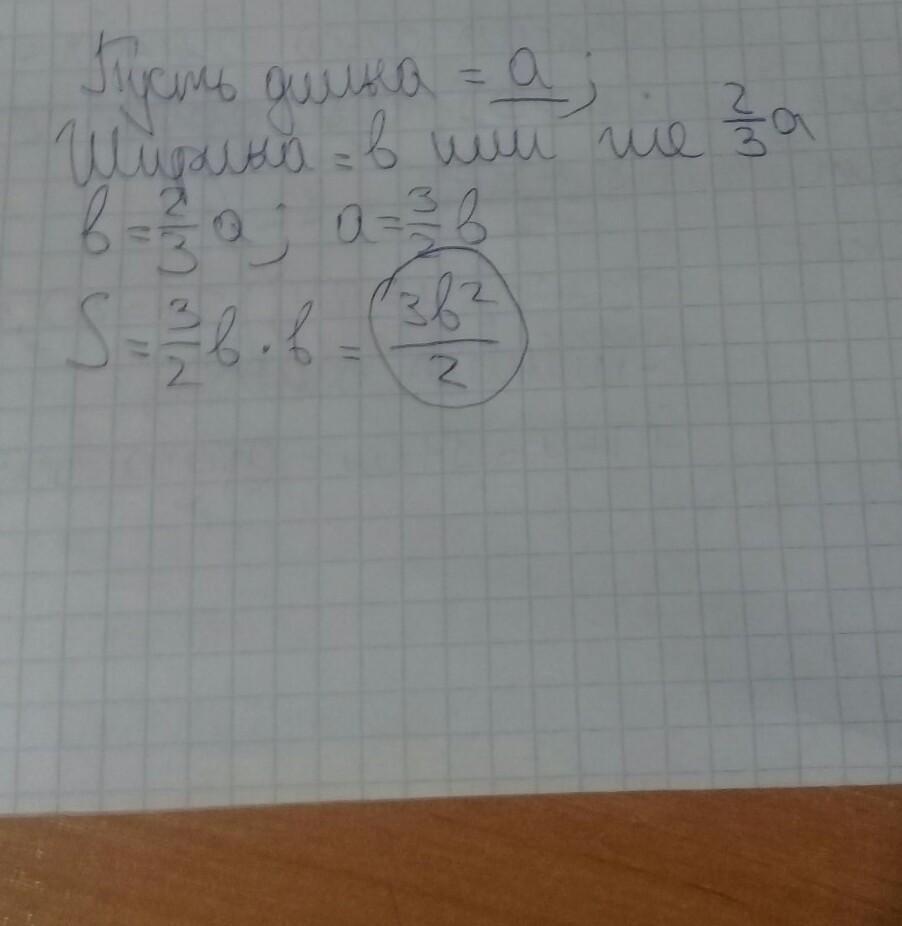 Пусть длина = a;
Ширина = в или же 2/3 a
в = 2/3 a; a = 3/2 в
S = 3/2 в · в = 3в²/2